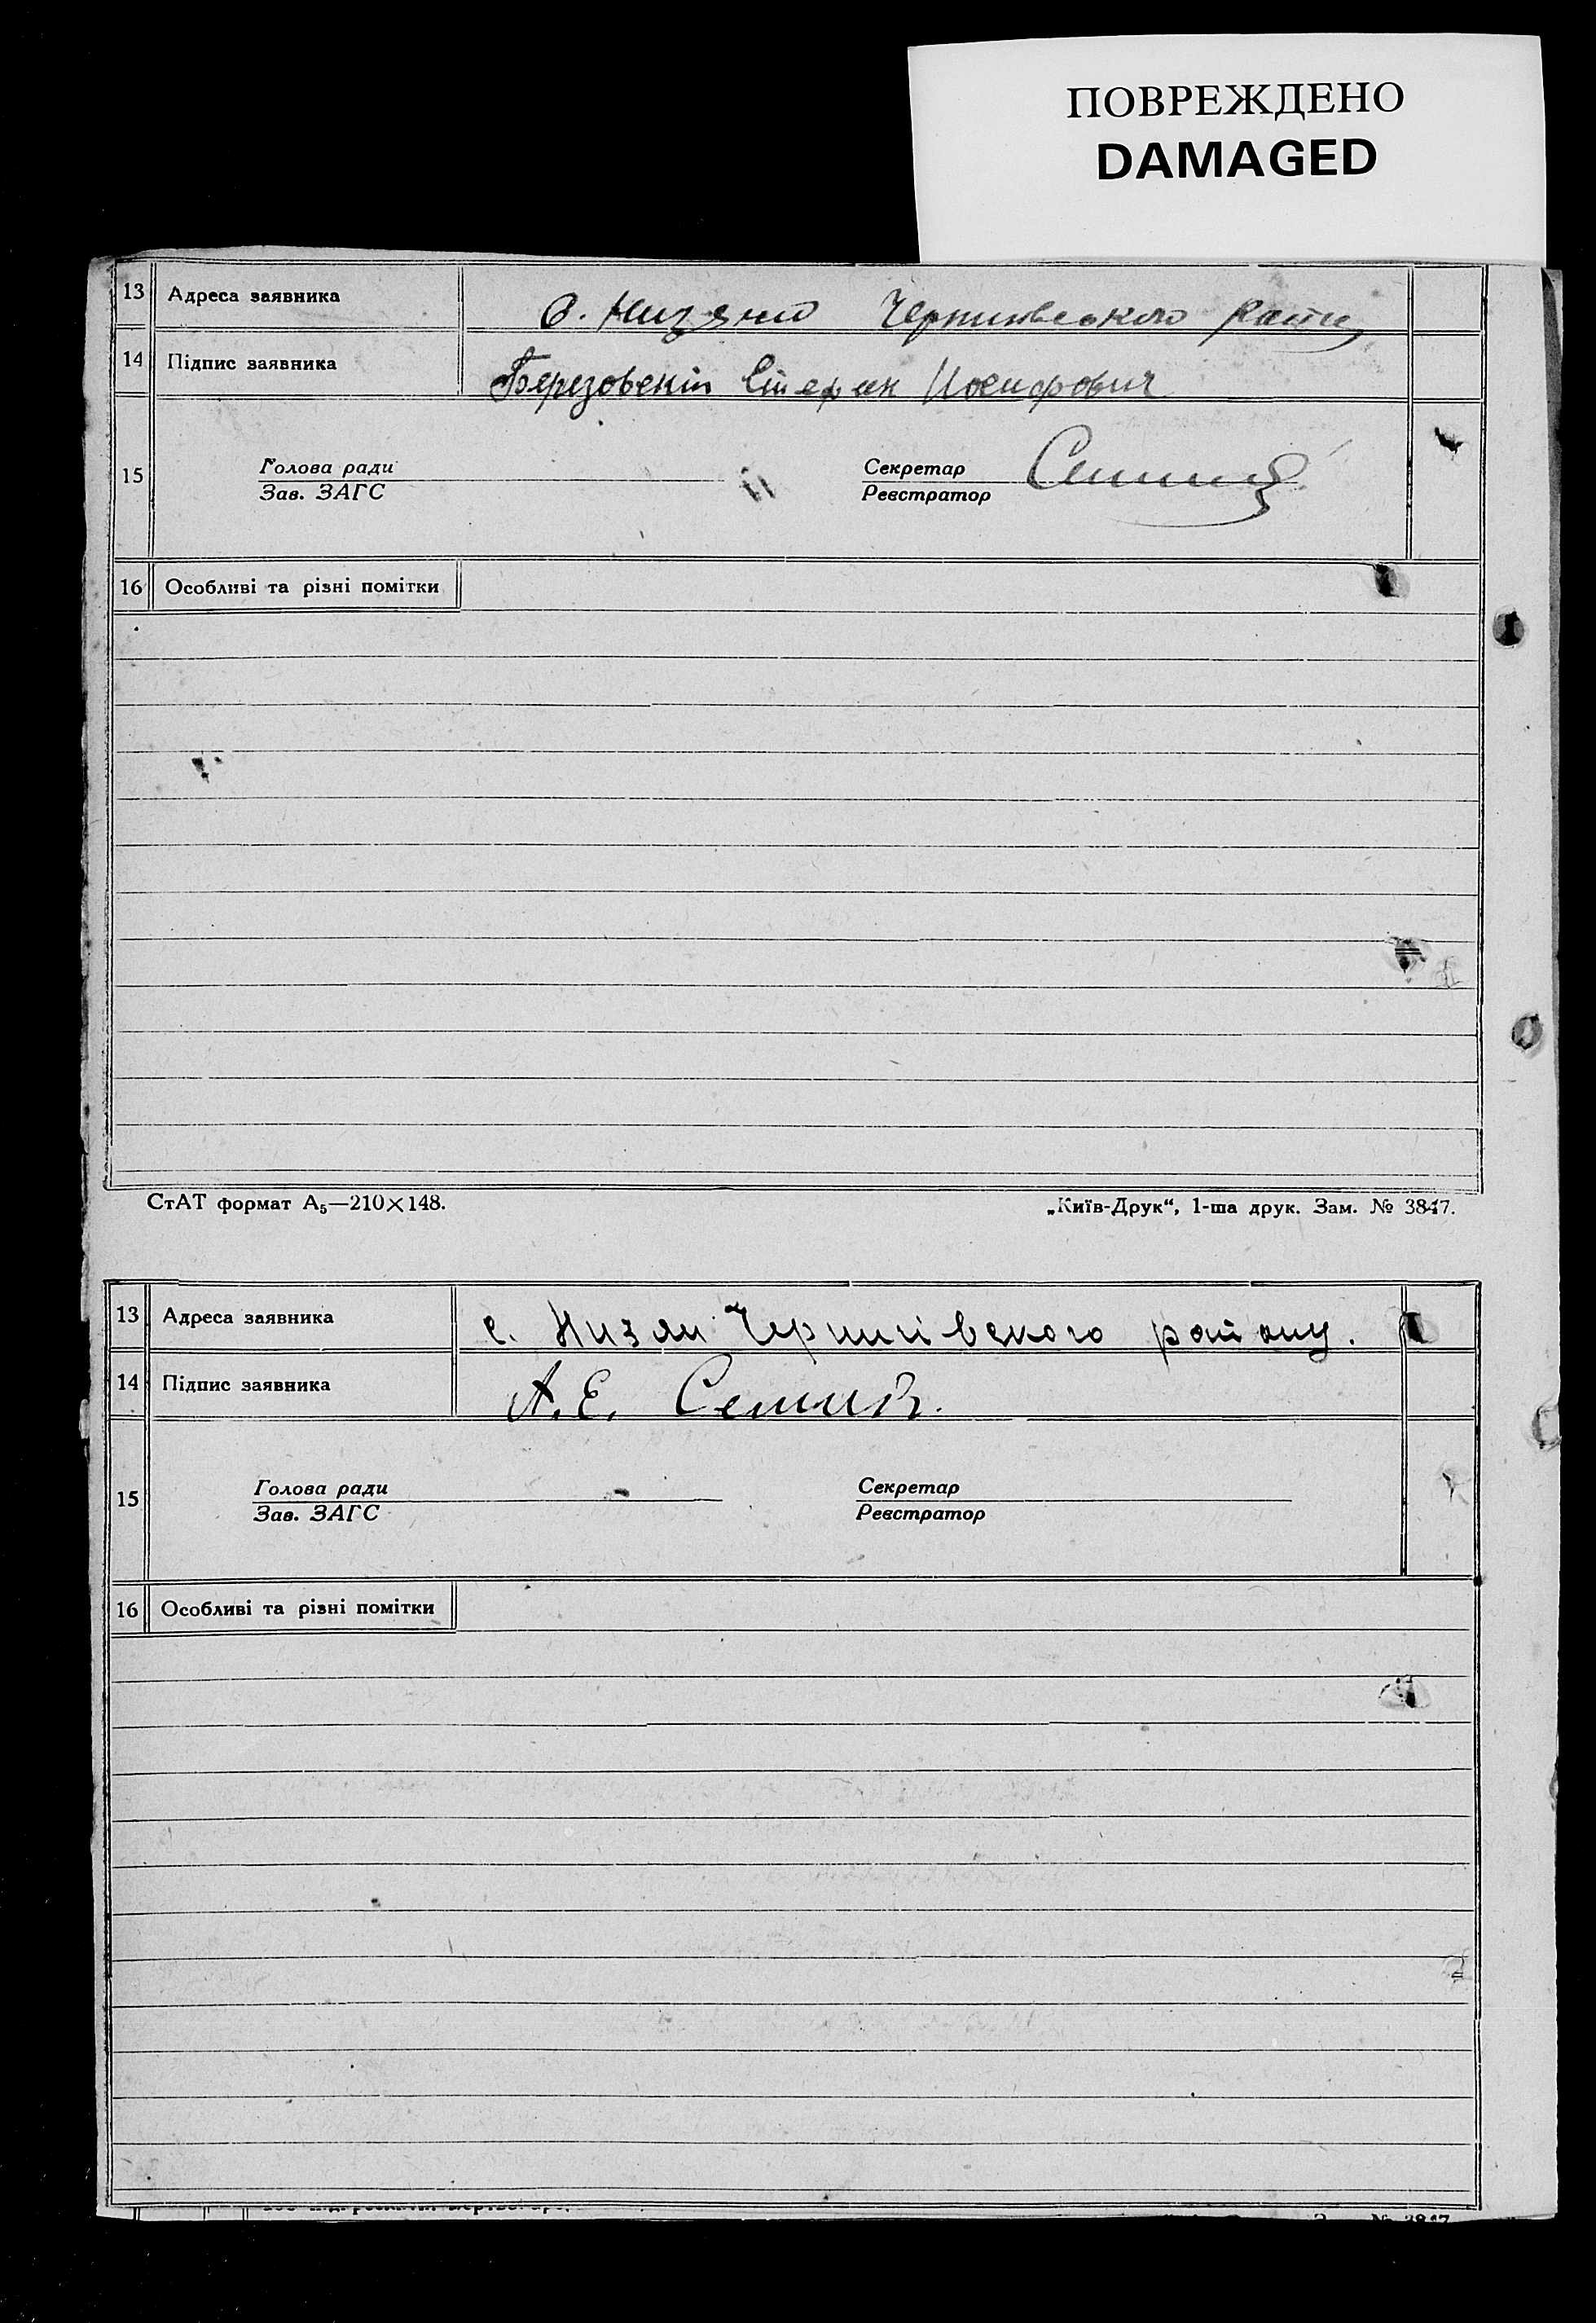 ПОВРЕЖДЕНО
DAMAGED
13 Адреса заявника с. Чернигівського
14 Підпис заявника Березовский Стефан Иосифович
15 Голова ради Секретар
Зав. ЗАГС Реєстратор
16 Особливі та різні помітки
СтАТ формат А₅—210×148. „Київ-Друк“, 1-ша друк. Зам. № 3847.
13 Адреса заявника с. Чернигівського району.
14 Підпис заявника А. Е.
15 Голова ради Секретар
Зав. ЗАГС Реєстратор
16 Особливі та різні помітки
№ 3847